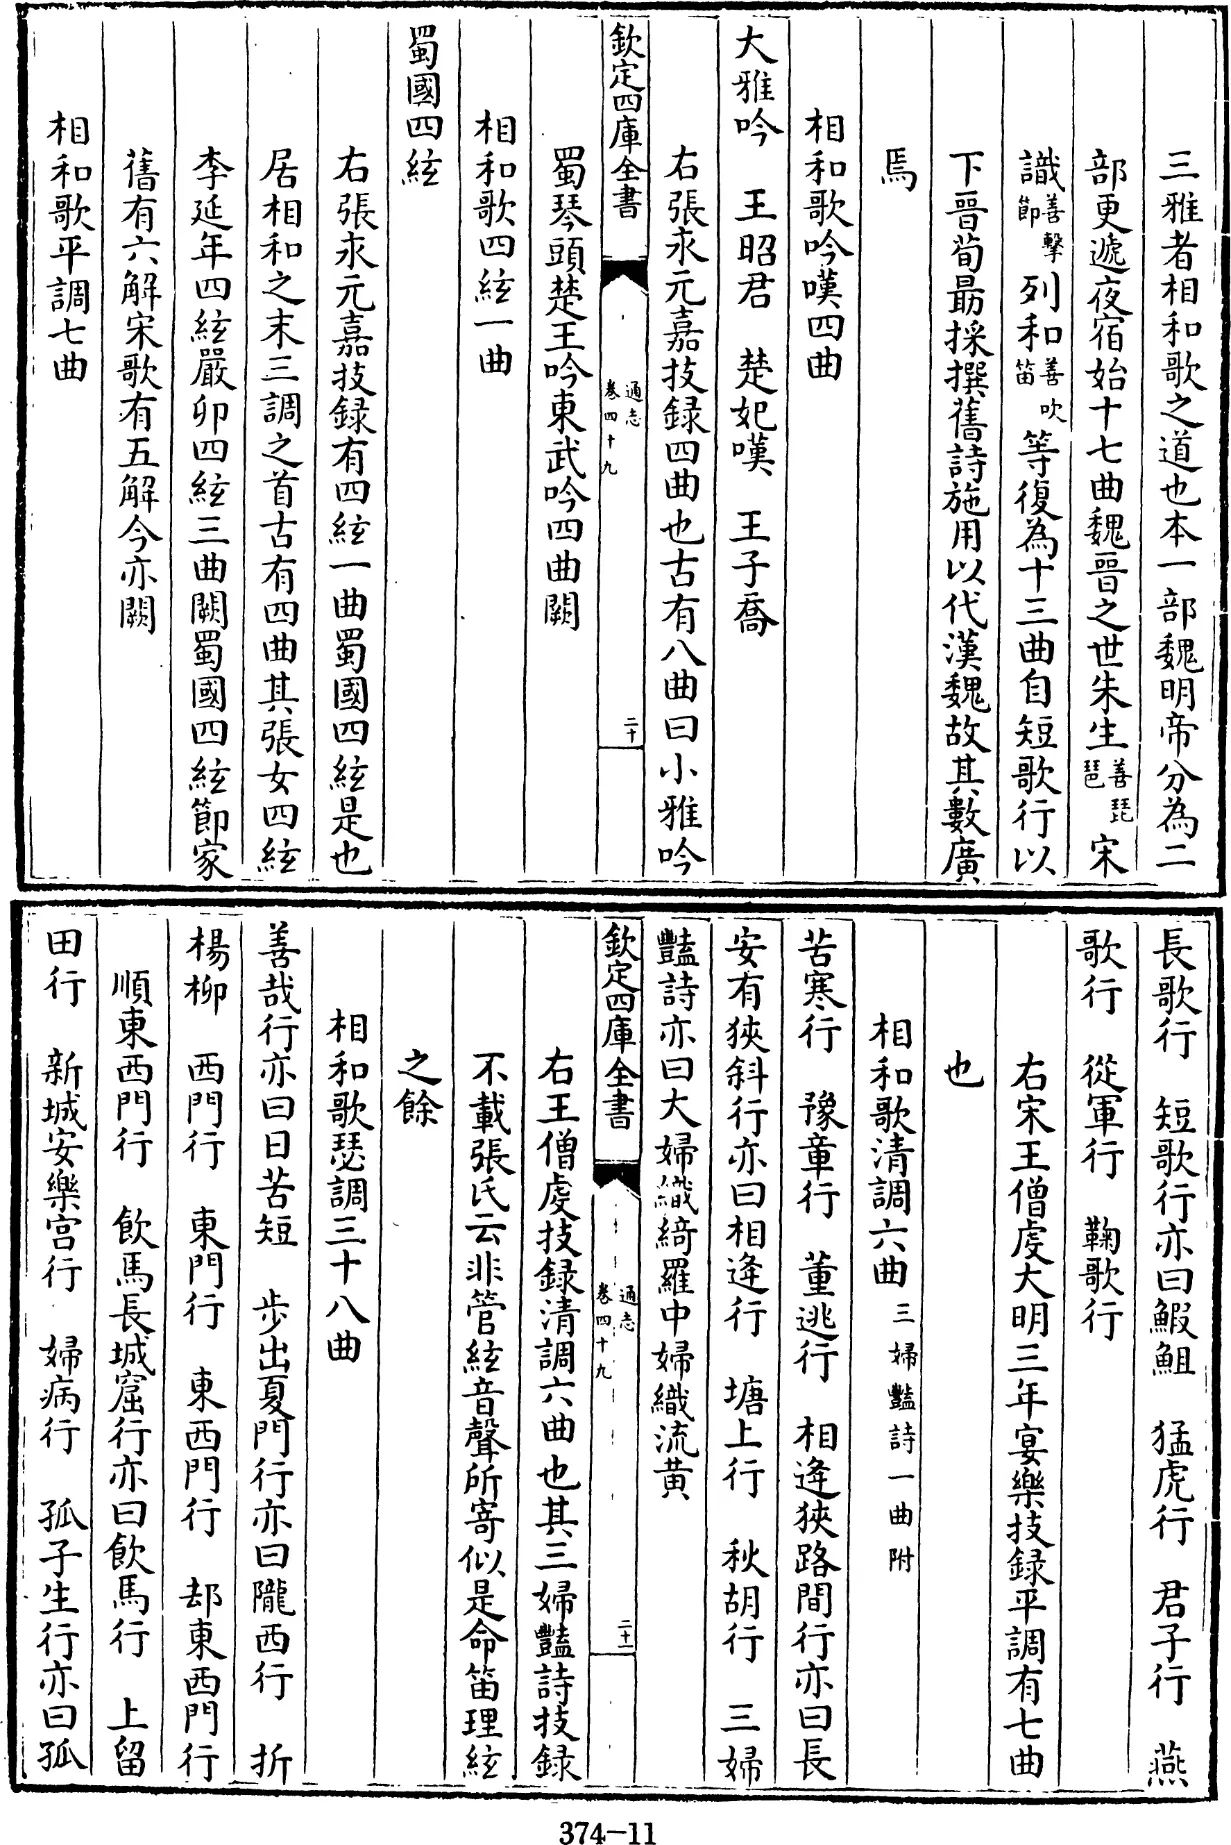 三雅者相和歌之道也本一部魏明帝分為二
部更遞夜宿始十七曲魏晉之世朱生善琵琶宋
識善擊節列和善吹笛等復為十三曲自短歌行以
下晉荀朂採撰舊詩施用以代漢魏故其數廣
焉
相和歌吟嘆四曲
大雅吟　王昭君　楚妃嘆　王子喬
右張永元嘉技録四曲也古有八曲曰小雅吟
欽定四庫全書
通志
卷四十九
二十
蜀琴頭楚王吟東武吟四曲闕
相和歌四絃一曲
蜀國四絃
右張永元嘉技録有四絃一曲蜀國四絃是也
居相和之末三調之首古有四曲其張女四絃
李延年四絃嚴卯四絃三曲闕蜀國四絃節家
舊有六解宋歌有五解今亦闕
相和歌平調七曲
長歌行　短歌行亦曰鰕䱇　猛虎行　君子行　燕
歌行　從軍行　鞠歌行
右宋王僧虔大明三年宴樂技録平調有七曲
也
相和歌清調六曲三婦豔詩一曲附
苦寒行　豫章行　董逃行　相逢狹路間行亦曰長
安有狹斜行亦曰相逢行　塘上行　秋胡行　三婦
豔詩亦曰大婦織綺羅中婦織流黃
欽定四庫全書
通志
卷四十九
二十一
右王僧虔技録清調六曲也其三婦豔詩技録
不載張氏云非管絃音聲所寄似是命笛理絃
之餘
相和歌瑟調三十八曲
善哉行亦曰日苦短　步出夏門行亦曰隴西行　折
楊柳　西門行　東門行　東西門行　却東西門行
順東西門行　飲馬長城窟行亦曰飲馬行　上留
田行　新城安樂宫行　婦病行　孤子生行亦曰孤
374-11